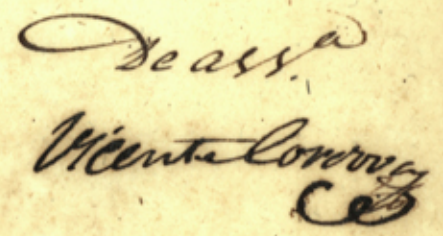 De ass.ª
Vicente Cordova